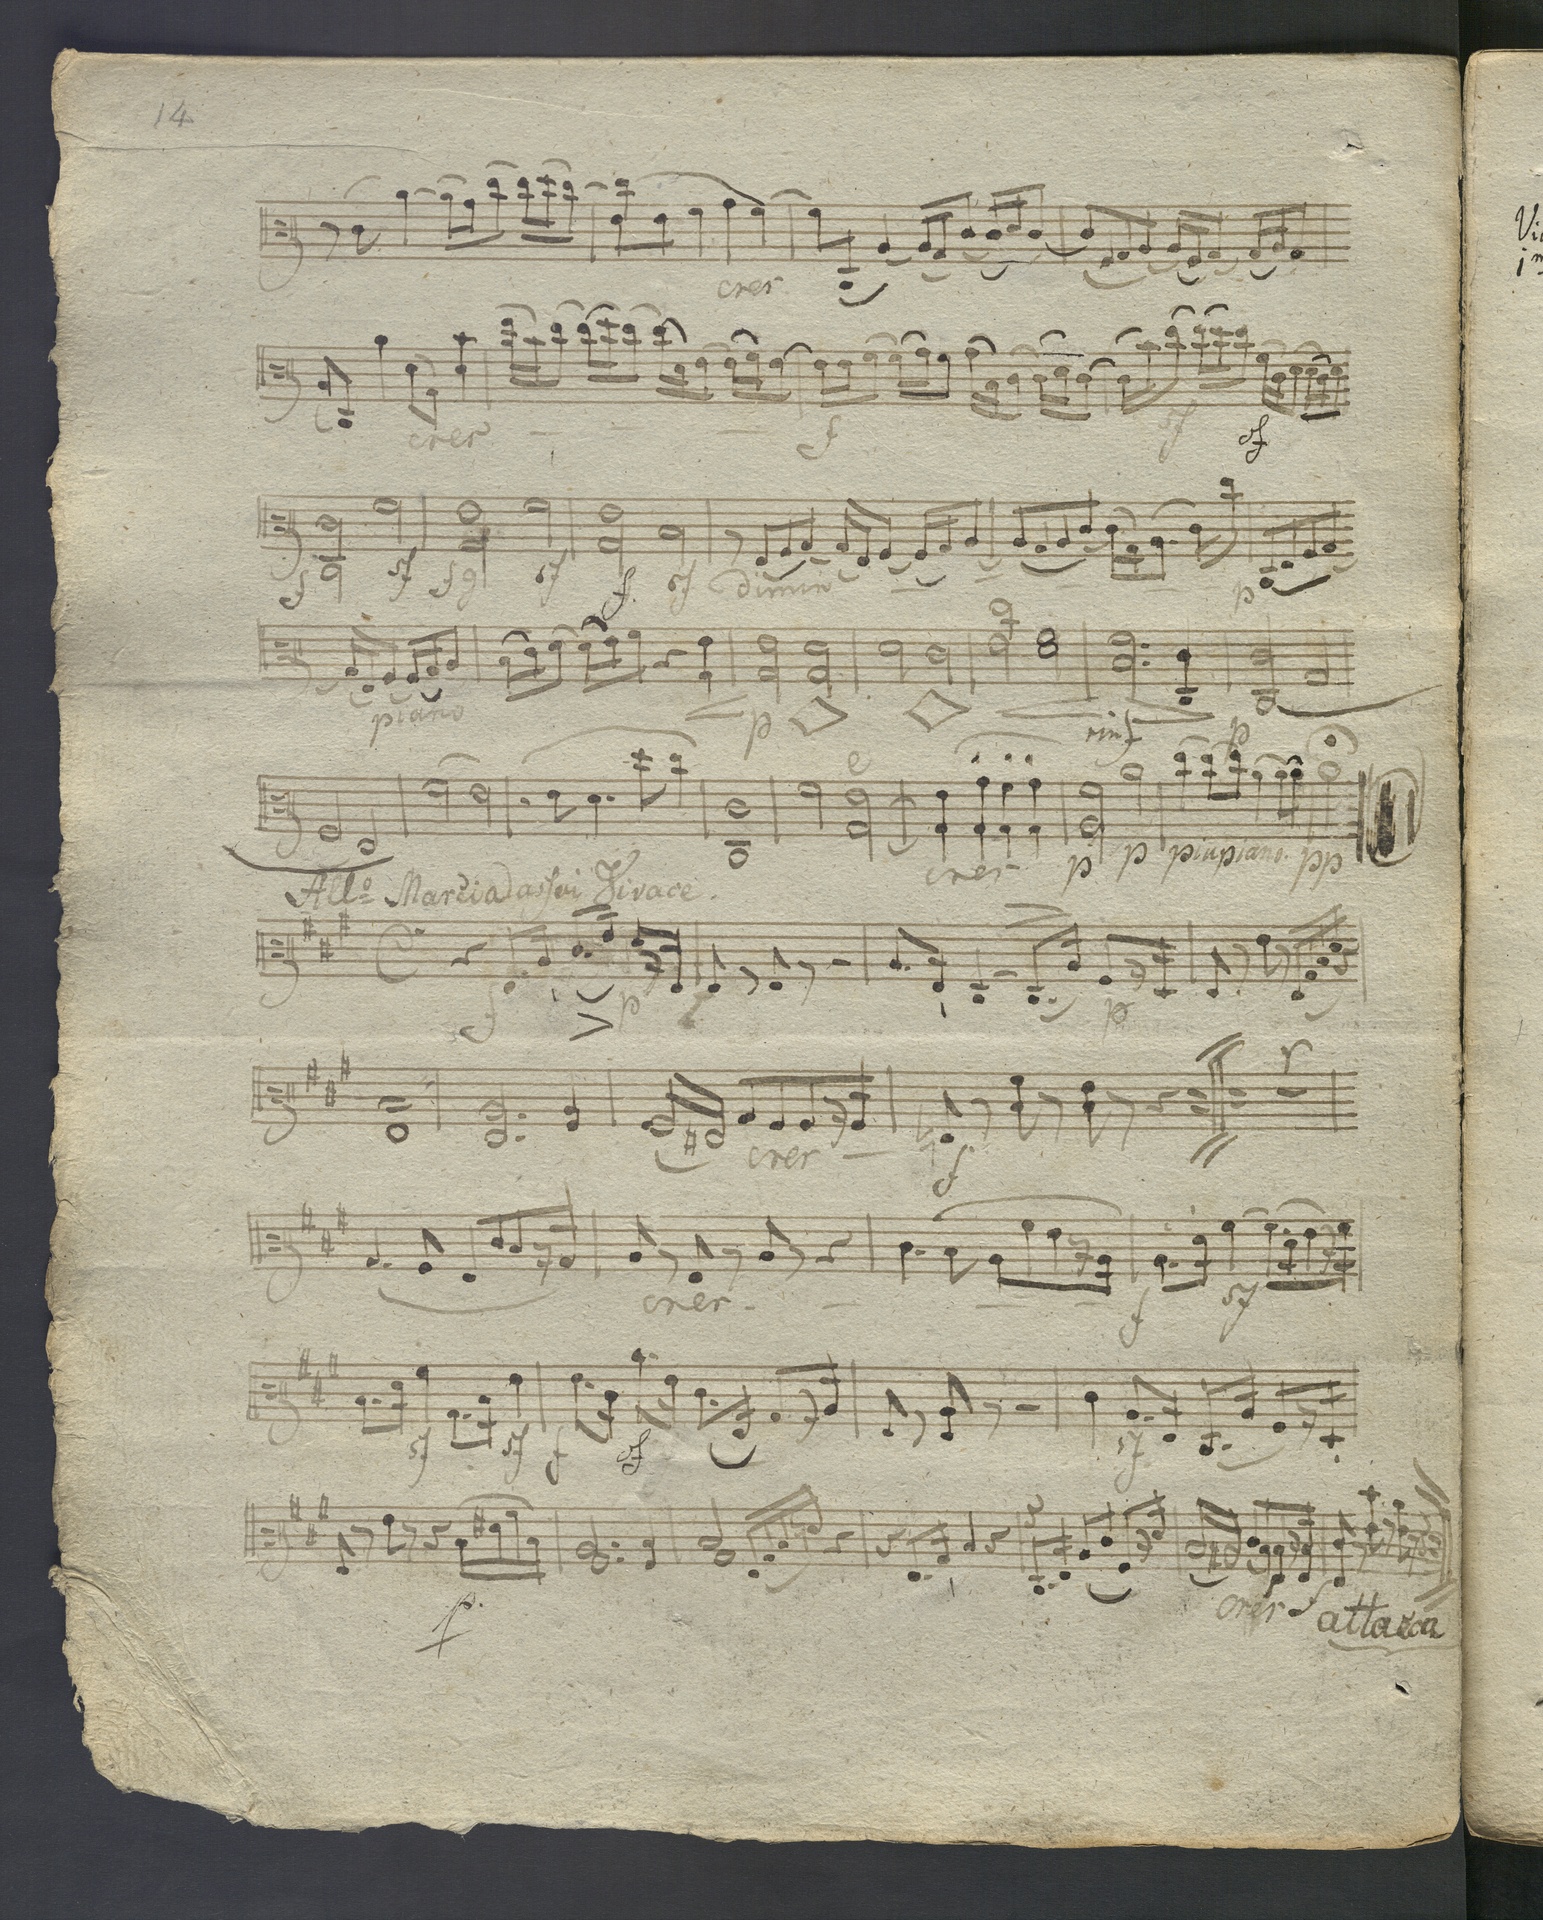 14
cres
cres f sf sf
f sf f sf f sf dimin p
piano p rinf p
cres p p piu piano pp
All:o Marcia assai Vivace.
f p p
cres f
cres f sf
sf sf f sf sf
p cres f attacca